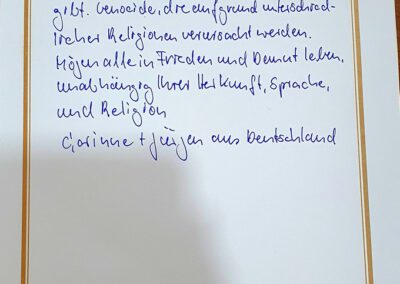 gibt. Genocide, die aufgrund unterschied-
licher Religionen verursacht werden.
Mögen alle in Frieden und Demut leben,
unabhängig Ihrer Herkunft, Sprache,
und Religion
Corinne + Jürgen aus Deutschland